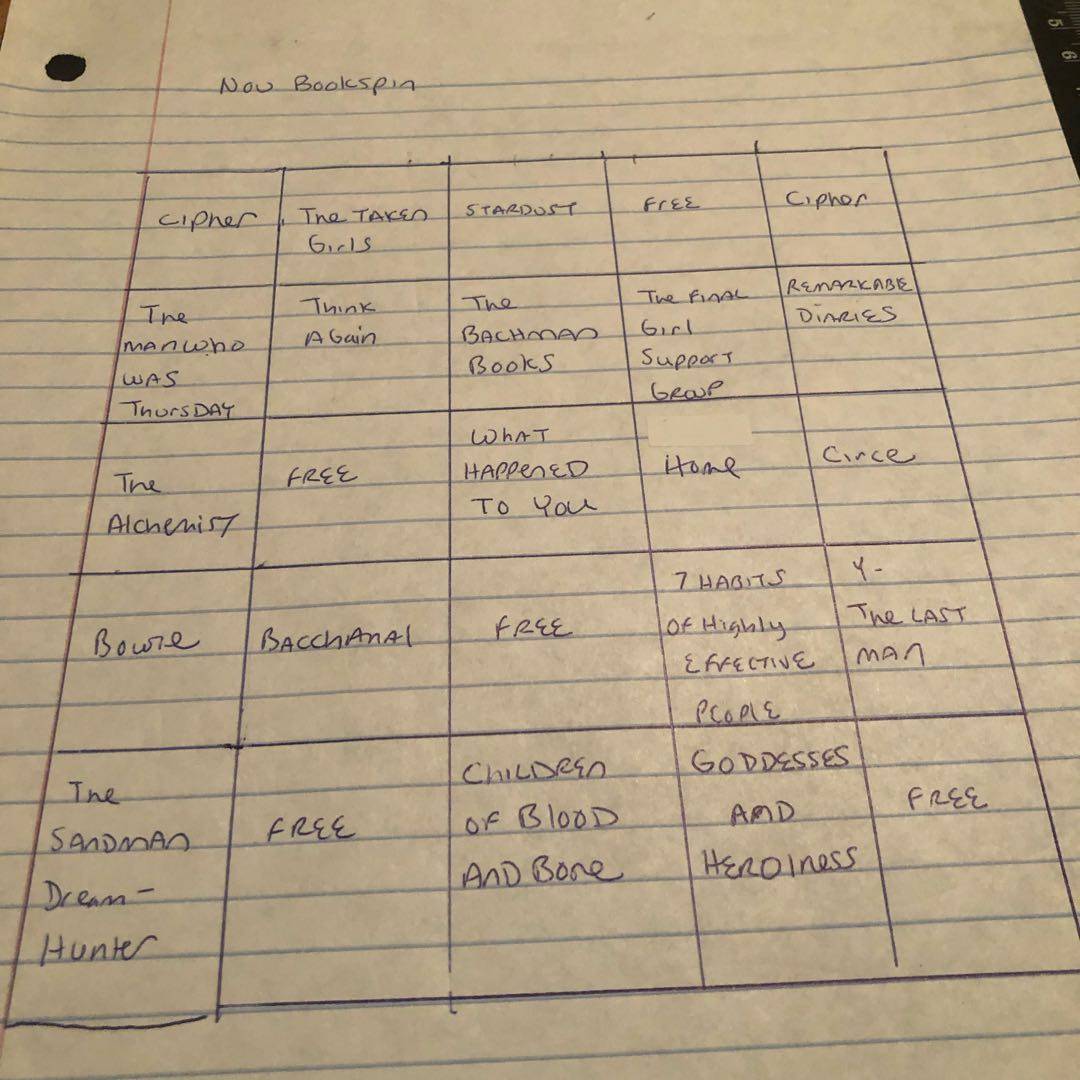 Nov Bookspin
Cipher
The TAKEN
Girls
STARDUST
FREE
Cipher
The
MAN WhO
WAS
ThursDAY
Think
AGain
The
BACHMAN
BOOKS
The FINAL
Girl
SUPPORT
GROUP
REMARKABLE
DIARIES
The
Alchemist
FREE
WhAT
HAPPENED
TO YOU
Home
Circe
Bowie
BACChANAl
FREE
7 HABITS
OF HIghly
EFFECTIVE
PEOPlE
Y-
The LAST
MAN
The
SANDMAN
Dream-
Hunter
FREE
ChILDREN
OF BlOOD
AND BONE
GODDESSES
AND
HEROINESS
FREE
5
6